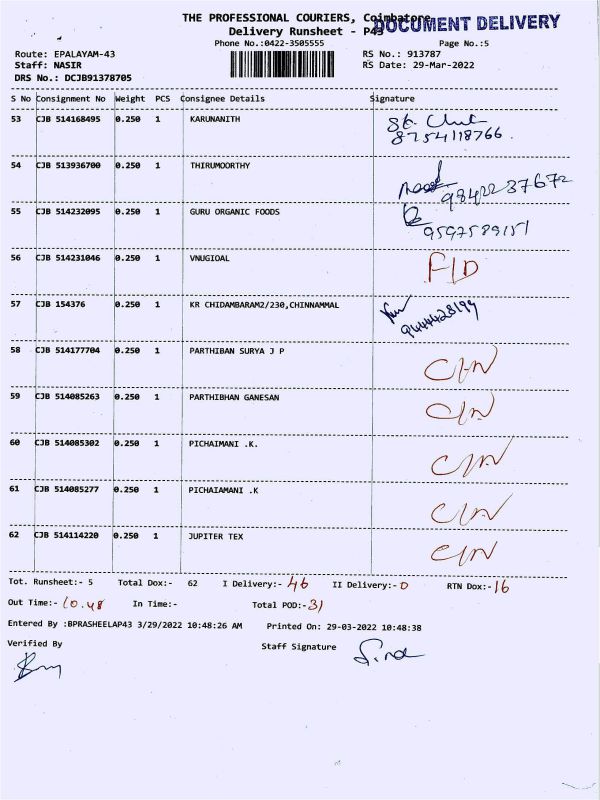 THE PROFESSIONAL COURIERS, Coimbatore
DOCUMENT DELIVERY
Delivery Runsheet - P43
Phone No.:0422-3505555
Page No.:5
Route: EPALAYAM-43
RS No.: 913787
Staff: NASIR
RS Date: 29-Mar-2022
DRS No.: DCJB91378705
S No Consignment No Weight PCS Consignee Details Signature
53 CJB 514168495 0.250 1 KARUNANITH
8754118766.
54 CJB 513936700 0.250 1 THIRUMOORTHY
9842237672
55 CJB 514232095 0.250 1 GURU ORGANIC FOODS
9597589151
56 CJB 514231046 0.250 1 VNUGIOAL F/D
57 CJB 154376 0.250 1 KR CHIDAMBARAM2/230,CHINNAMMAL
9444428199
58 CJB 514177704 0.250 1 PARTHIBAN SURYA J P
59 CJB 514085263 0.250 1 PARTHIBHAN GANESAN
60 CJB 514085302 0.250 1 PICHAIMANI .K.
61 CJB 514085277 0.250 1 PICHAIAMANI .K
62 CJB 514114220 0.250 1 JUPITER TEX
Tot. Runsheet:- 5 Total Dox:- 62 I Delivery:- 46 II Delivery:- 0 RTN Dox:- 16
Out Time:- 10.48 In Time:- Total POD:- 31
Entered By :BPRASHEELAP43 3/29/2022 10:48:26 AM Printed On: 29-03-2022 10:48:38
Verified By Staff Signature